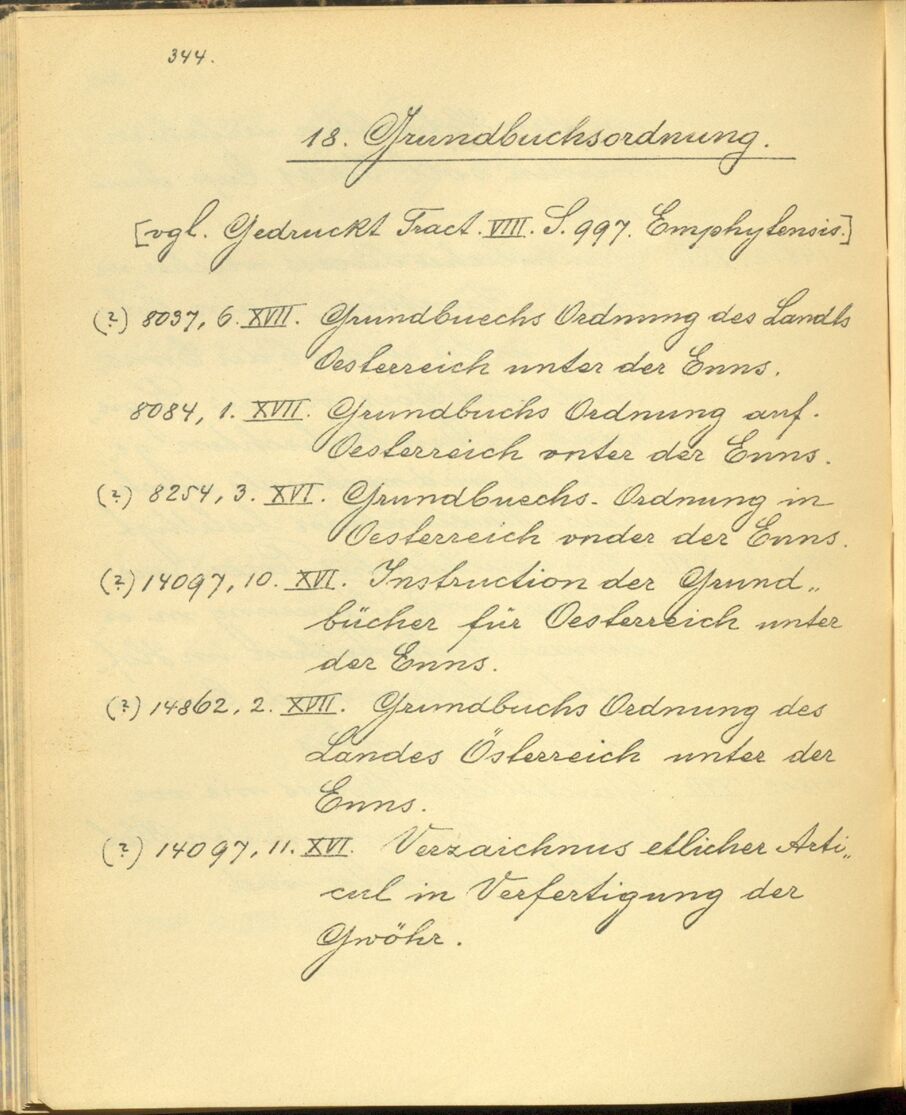 344.
18. Grundbuchsordnung.
[vgl. Gedruckt Tract. VIII. S. 997. Emphytensis.]
(?) 8037, 6. XVII. Grundbuechs Ordnung des Landts
Oesterreich unter der Enns.
8084, 1. XVII. Grundbuchs Ordnung auf.
Oesterreich vnter der Enns.
(?) 8254, 3. XVI. Grundbuechs- Ordnung in
Oesterreich vnder der Enns.
(?) 14097, 10. XVI. Instruction der Grund„
bücher für Oesterreich unter
der Enns.
(?) 14862, 2. XVII. Grundbuchs Ordnung des
Landes Österreich unter der
Enns.
(?) 14097, 11. XVI. Verzaichnus etlicher Arti„
cul in Verfertigung der
Gwöhr.